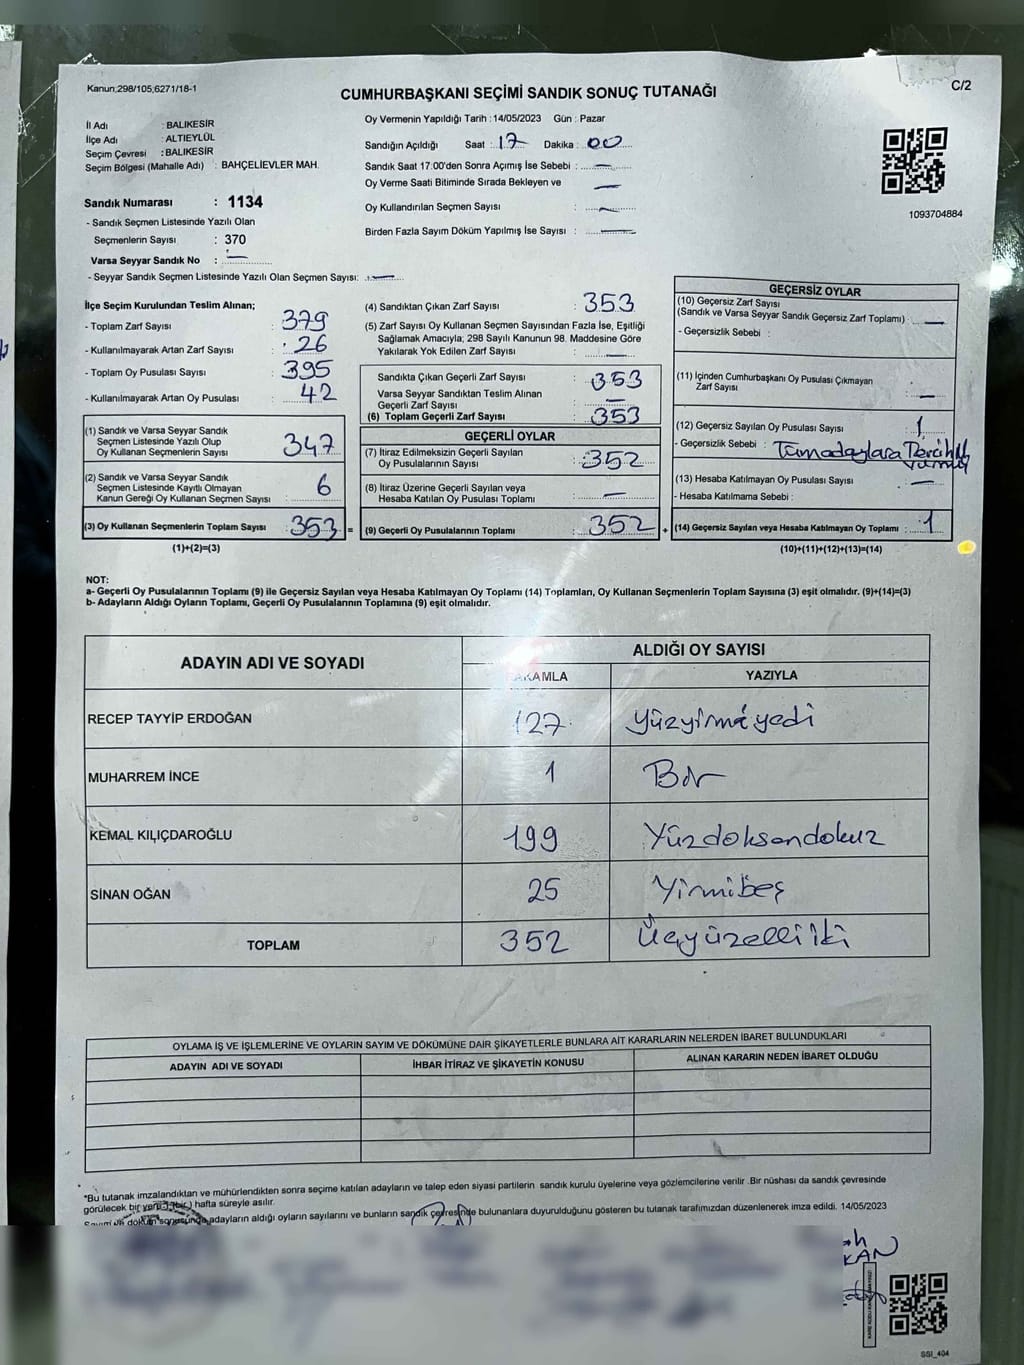 Kanun,298/105,6271/18-1
CUMHURBAŞKANI SEÇİMİ SANDIK SONUÇ TUTANAĞI
C/2
İl Adı : BALIKESİR
İlçe Adı : ALTIEYLÜL
Seçim Çevresi : BALIKESİR
Seçim Bölgesi (Mahalle Adı) : BAHÇELİEVLER MAH.
Sandık Numarası : 1134
- Sandık Seçmen Listesinde Yazılı Olan
Seçmenlerin Sayısı : 370
Varsa Seyyar Sandık No : —
- Seyyar Sandık Seçmen Listesinde Yazılı Olan Seçmen Sayısı: —
Oy Vermenin Yapıldığı Tarih : 14/05/2023 Gün : Pazar
Sandığın Açıldığı Saat : 17 Dakika : 00
Sandık Saat 17:00'den Sonra Açımış İse Sebebi : —
Oy Verme Saati Bitiminde Sırada Bekleyen ve —
Oy Kullandırılan Seçmen Sayısı : —
Birden Fazla Sayım Döküm Yapılmış İse Sayısı : —
1093704884
İlçe Seçim Kurulundan Teslim Alınan;
- Toplam Zarf Sayısı : 379
- Kullanılmayarak Artan Zarf Sayısı : 26
- Toplam Oy Pusulası Sayısı : 395
- Kullanılmayarak Artan Oy Pusulası : 42
(1) Sandık ve Varsa Seyyar Sandık
Seçmen Listesinde Yazılı Olup
Oy Kullanan Seçmenlerin Sayısı : 347
(2) Sandık ve Varsa Seyyar Sandık
Seçmen Listesinde Kayıtlı Olmayan
Kanun Gereği Oy Kullanan Seçmen Sayısı : 6
(3) Oy Kullanan Seçmenlerin Toplam Sayısı : 353 =
(1)+(2)=(3)
(4) Sandıktan Çıkan Zarf Sayısı : 353
(5) Zarf Sayısı Oy Kullanan Seçmen Sayısından Fazla İse, Eşitliği
Sağlamak Amacıyla; 298 Sayılı Kanunun 98. Maddesine Göre
Yakılarak Yok Edilen Zarf Sayısı : —
Sandıkta Çıkan Geçerli Zarf Sayısı : 353
Varsa Seyyar Sandıktan Teslim Alınan
Geçerli Zarf Sayısı : —
(6) Toplam Geçerli Zarf Sayısı : 353
GEÇERLİ OYLAR
(7) İtiraz Edilmeksizin Geçerli Sayılan
Oy Pusulalarının Sayısı : 352
(8) İtiraz Üzerine Geçerli Sayılan veya
Hesaba Katılan Oy Pusulası Toplamı : —
(9) Geçerli Oy Pusulalarının Toplamı : 352 +
GEÇERSİZ OYLAR
(10) Geçersiz Zarf Sayısı
(Sandık ve Varsa Seyyar Sandık Geçersiz Zarf Toplamı) : —
- Geçersizlik Sebebi :
(11) İçinden Cumhurbaşkanı Oy Pusulası Çıkmayan
Zarf Sayısı : —
(12) Geçersiz Sayılan Oy Pusulası Sayısı : 1
- Geçersizlik Sebebi : Tüm adaylara
(13) Hesaba Katılmayan Oy Pusulası Sayısı : —
- Hesaba Katılmama Sebebi :
(14) Geçersiz Sayılan veya Hesaba Katılmayan Oy Toplamı : 1
(10)+(11)+(12)+(13)=(14)
NOT:
a- Geçerli Oy Pusulalarının Toplamı (9) ile Geçersiz Sayılan veya Hesaba Katılmayan Oy Toplamı (14) Toplamları, Oy Kullanan Seçmenlerin Toplam Sayısına (3) eşit olmalıdır. (9)+(14)=(3)
b- Adayların Aldığı Oyların Toplamı, Geçerli Oy Pusulalarının Toplamına (9) eşit olmalıdır.
ADAYIN ADI VE SOYADI ALDIĞI OY SAYISI
RAKAMLA YAZIYLA
RECEP TAYYİP ERDOĞAN 127 yüzyirmiyedi
MUHARREM İNCE 1 Bir
KEMAL KILIÇDAROĞLU 199 Yüzdoksandokuz
SİNAN OĞAN 25 Yirmibeş
TOPLAM 352 Üçyüzelliiki
OYLAMA İŞ VE İŞLEMLERİNE VE OYLARIN SAYIM VE DÖKÜMÜNE DAİR ŞİKAYETLERLE BUNLARA AİT KARARLARIN NELERDEN İBARET BULUNDUKLARI
ADAYIN ADI VE SOYADI İHBAR İTİRAZ VE ŞİKAYETİN KONUSU ALINAN KARARIN NEDEN İBARET OLDUĞU
*Bu tutanak imzalandıktan ve mühürlendikten sonra seçime katılan adayların ve talep eden siyasi partilerin sandık kurulu üyelerine veya gözlemcilerine verilir .Bir nüshası da sandık çevresinde
görülecek bir yere 1(bir) hafta süreyle asılır.
Sayım ve döküm sonucunda adayların aldığı oyların sayılarını ve bunların sandık çevresinde bulunanlara duyurulduğunu gösteren bu tutanak tarafımızdan düzenlenerek imza edildi. 14/05/2023
KAN
SSI_404